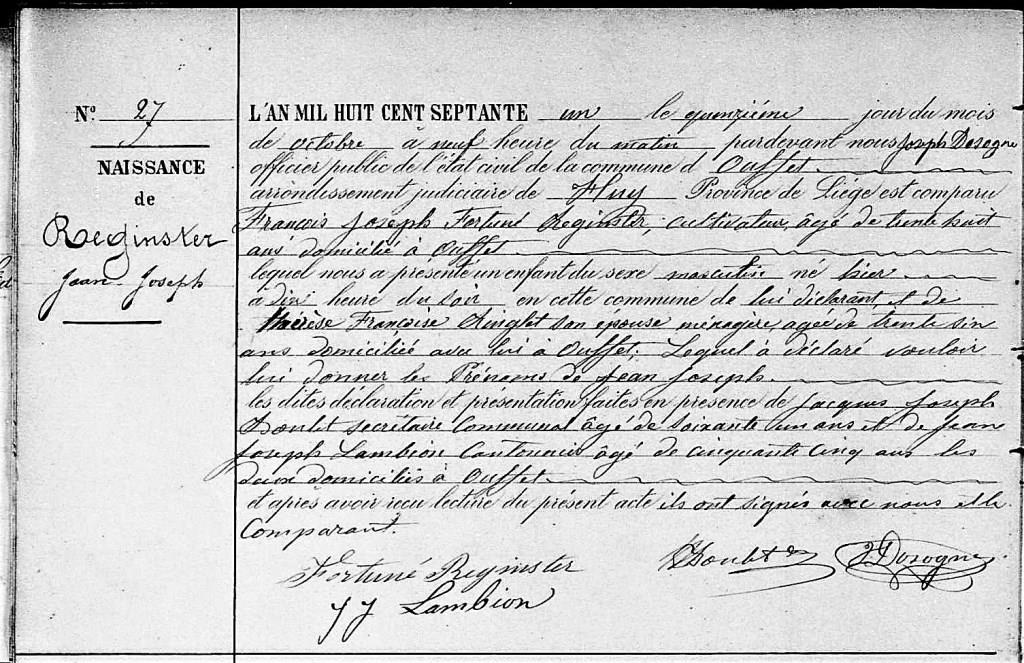 N.° 27
NAISSANCE
de
Reginster
Jean-Joseph
L'AN MIL HUIT CENT SEPTANTE un le quinzième jour du mois
de octobre à neuf heure du matin pardevant nous Joseph Dosogne
officier public de l'état civil de la commune d' Ouffet
arrondissement judiciaire de Huy Province de Liège est comparu
François Joseph Fortuné Reginster, cultivateur, âgé de trente huit
ans domicilié à Ouffet
lequel nous a présenté un enfant du sexe masculin né hier
à dix heure du soir en cette commune de lui déclarant et de
Thérèse Françoise Ringlet son épouse ménagère, agée de trente six
ans domiciliée avec lui à Ouffet; Lequel à déclaré vouloir
lui donner les Prénoms de Jean Joseph.
les dites déclaration et présentation faites en presence de Jacques Joseph
secrétaire Communal âgé de soixante un ans et de Jean
Joseph Lambion Cantonnier âgé de cinquante cinq ans les
deux domiciliés à Ouffet
et après avoir reçu lecture du présent acte ils ont signés avec nous et le
Comparant.
Fortuné Reginster
J Dosogne
J J Lambion